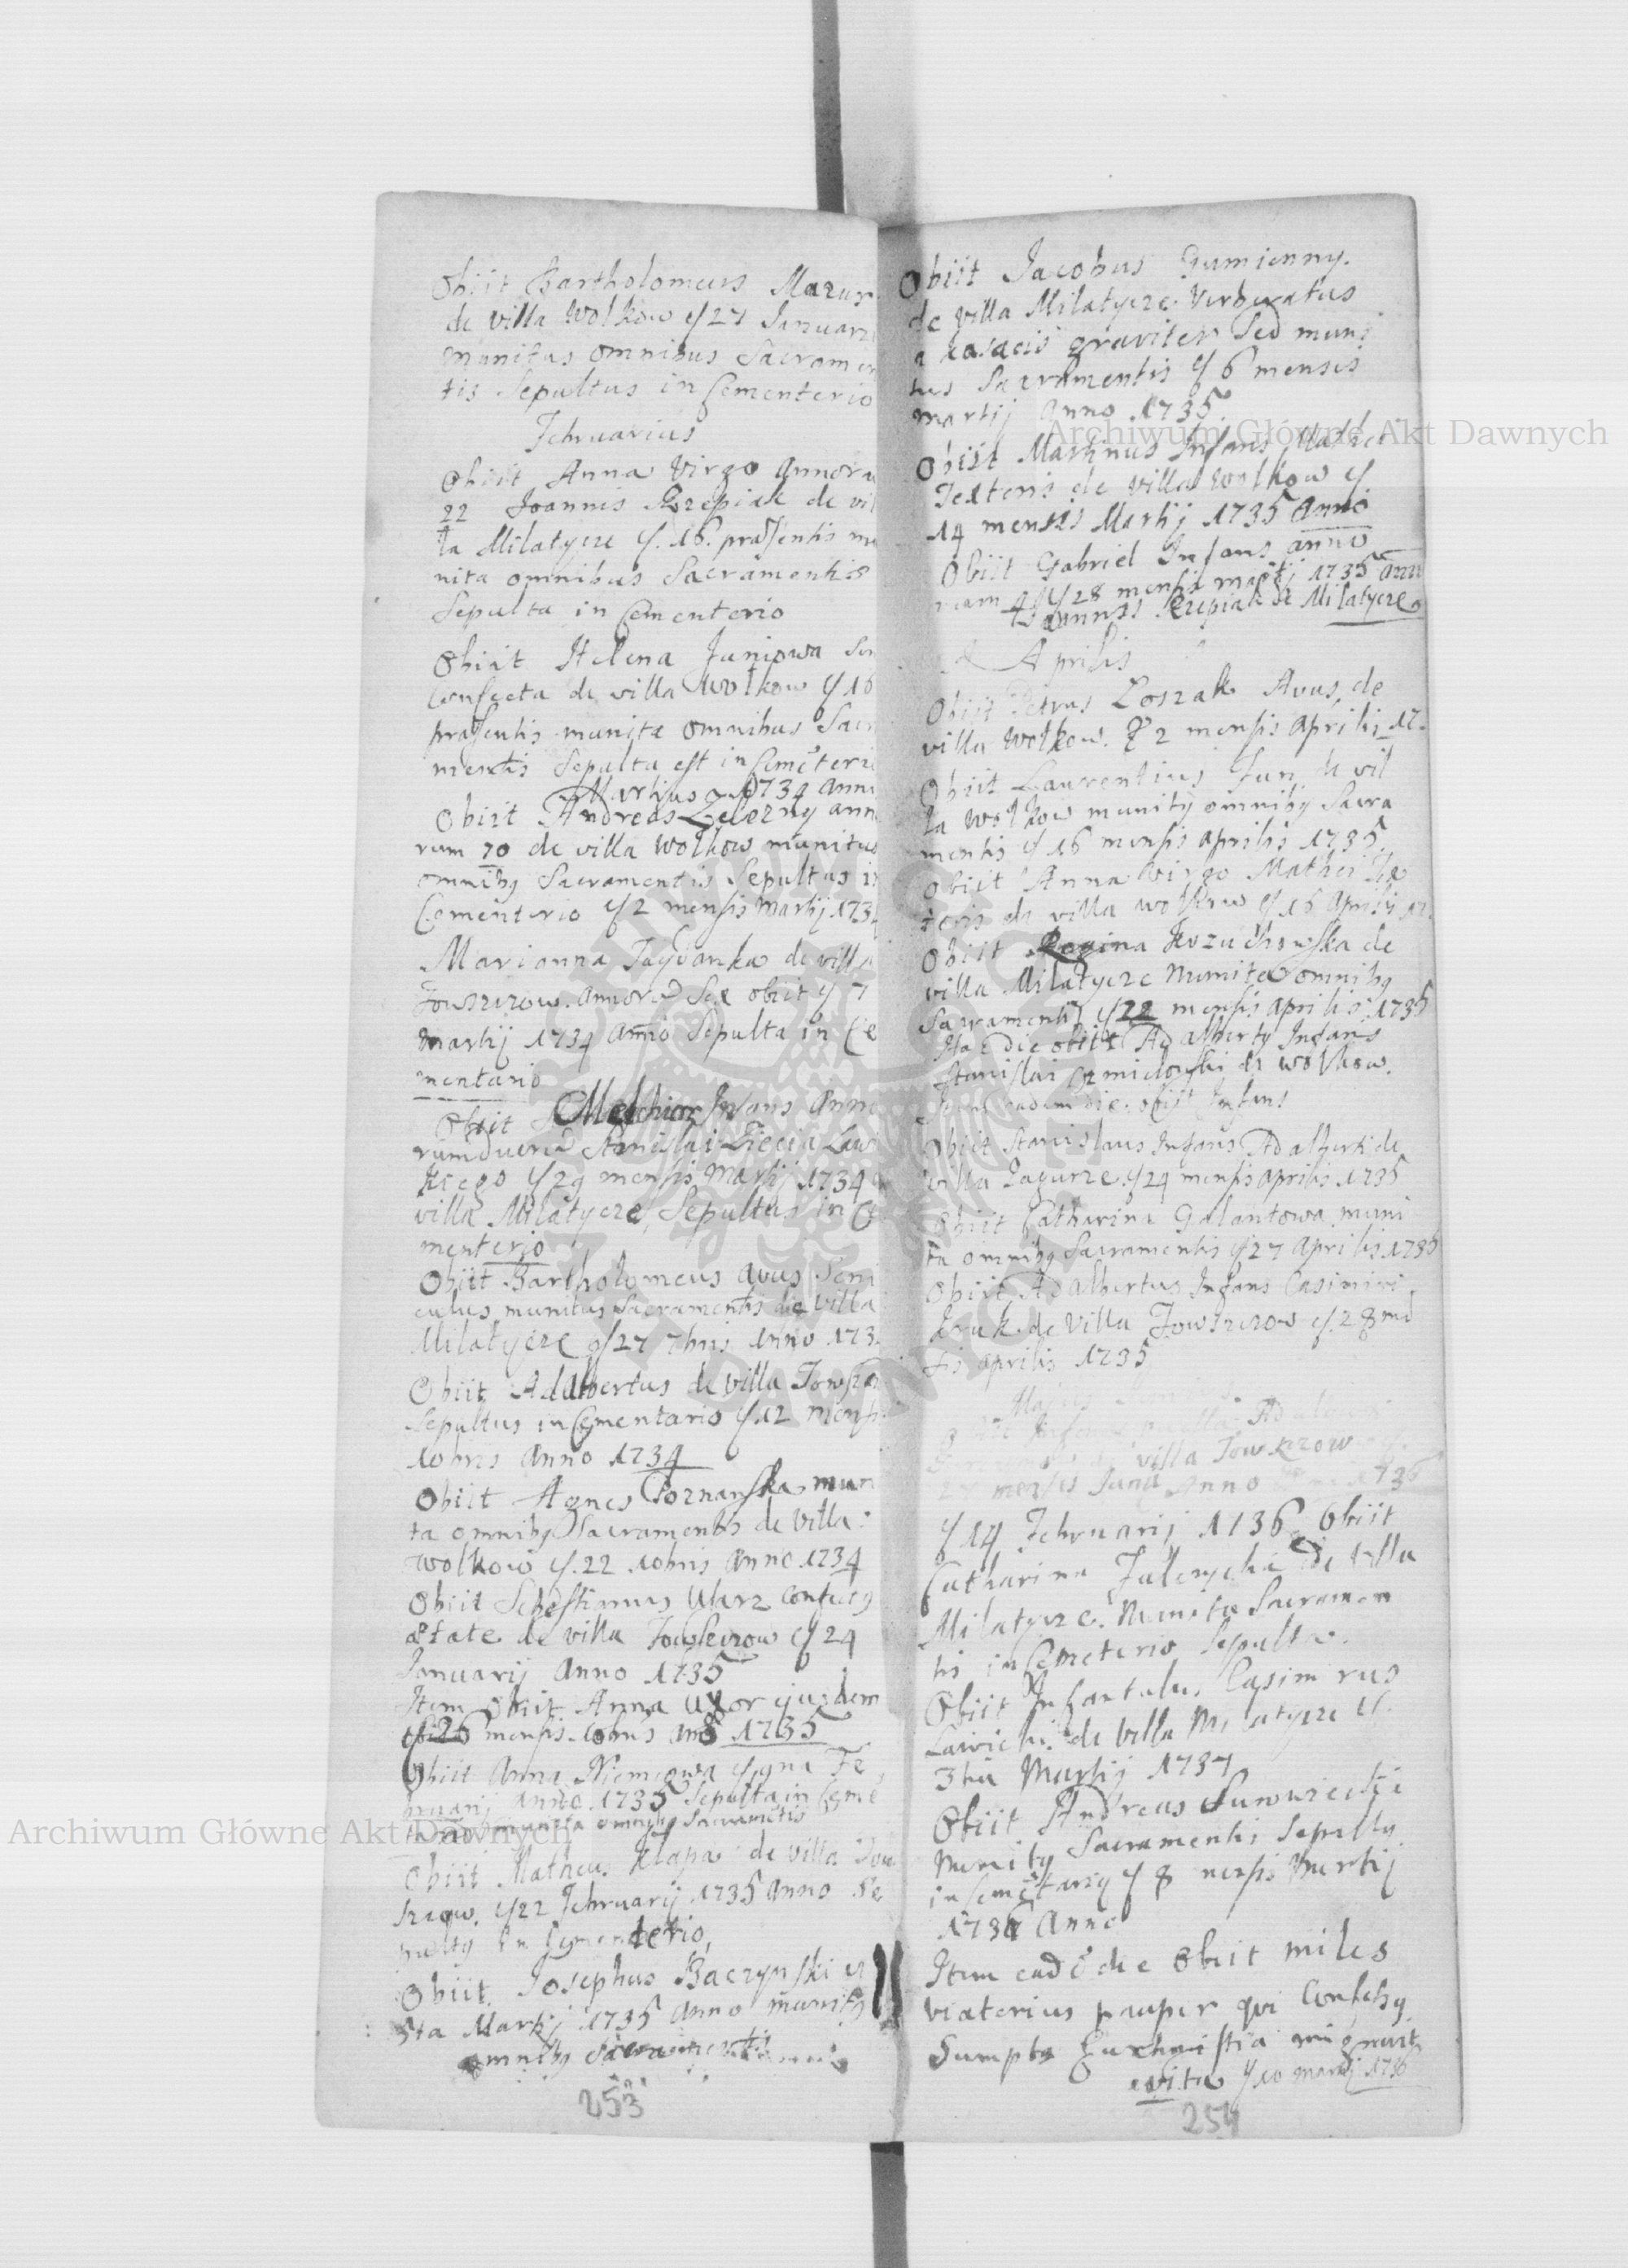 Obiit Bartholomeus Mazur
de villa Wolkow ej 27 Januarii
munitus omnibus Sacramen
tis Sepultus in Cementerio
Februarius
Obiit Anna Virgo annoru
22 Joannis Krepiak de vil
la Milatycze ej. 16. præsentis mu
nita omnibus Sacramentis
Sepulta in Cementerio
Obiit Helena Juniowa Sen
confecta de villa Wolkow ej 16
præsentis munita omnibus Sacr
mentis Sepulta est in Cemeterio
Martius 1734 anni
Obiit Andreas Zelezny ann
rum 70 de villa Wolkow munitus
omnibg Sacramentis Sepultus in
Cementerio ej 2 mensis Martij 173
Marianna Faydanka de villa
Towszczow. annoru Sex obiit ej 7
Martij 1734 anno Sepulta in Ce
mentario
Obiit Melchior Infans anno
rum duoru Stanislai Ziecia Law
kiego ej 29 mensis Martij 1734
villa Milatycze, Sepultus in C
menterio
Obiit Bartholomeus avus Seni
culus munitus Sacramentis de villa
Milatycze ej 27 7bris Anno 173
Obiit Adalbertus de villa Towszcz
Sepultus in Cementario ej 12 mensis
10bris Anno 1734
Obiit Agnes Poznanska muni
ta omnibg Sacramentis de villa
Wolkow ej. 22 10bris Anno 1734
Obiit Sebestianus Ularz confectg
ætate de villa Towszczow ej 24
Januarij Anno 1735
Item Obiit Anna Uxor ejusdem
26 mensis 1735
Obiit Anna Niemcowa ej 9na Fe
bruarij anno 1735 Sepulta in Ceme
munita omnibg Sacrametis
Obiit Matheus Klapa de villa Tow
szczow. ej 22 Februarij 1735 Anno Se
pultg in Cementerio
Obiit Josephus Baczynski ej
5ta Martij 1735 Anno munitg
omnibg Sacramentis
253
Obiit Jacobus Gumienny.
de villa Milatycze. Verberatus
a kasacis graviter Sed muni
tus Sacramentis ej 6 mensis
martij Anno 1735
Obiit Martinus Infans Mathei
Textoris de villa Wolkow ej
14 mensis Martij 1735 Anno
Obiit Gabriel Infans anno
rum 4 ej 28 mensis martij 1735 ann
Joannis Krepiak de Milatycze
Aprilis
Obiit Petrus Loszak Avus, de
villa Wolkow. ej 2 mensis Aprilis 17
Obiit Laurentius Jun de vil
la Wolkow munitg omnibg Sacra
mentis ej 16 mensis aprilis 1735
Obiit Anna Virgo Mathei Tex
toris de villa Wolkow ej 16 Aprilis 17
Obiit Regina Kozuchowska de
villa Milatycze Munita omnibg
Sacramentis ej 22 mensis aprilis 1735
Hac die obiit Adalbertg Infans
Stanislai de Wolkow.
Item eadem die obiit Infans
Obiit Stanislaus Infans Adalberti de
villa Zagurze ej 24 mensis aprilis 1735
Obiit Catharina Galantowa muni
ta omnibg Sacramentis ej 27 Aprilis 1735
Obiit Adalbertus Infans Casimiri
Kruk de Villa Towszczow ej. 28 mē
sis aprilis 1735
Majus
villa Towszczow
mensis Junij Anno 1736
ej 14 Februarij 1736 Obiit
Catharina de Villa
Milatycze. Munita Sacramen
tis in Cemeterio Sepulta.
Obiit Infantulus Casimirus
Lawicki de Villa Milatycze ej
3tia Martij 1737
Obiit Andreas
Munitg Sacramentis Sepultg
in Cemetarij ej 8 mensis Martij
1736 Anno
Item eadē die Obiit miles
viatorius pauper qui confectg
Sumpta Eucharistia migravit
e vita ej 10 martij 1736
254
Archiwum Główne Akt Dawnych
Archiwum Główne Akt Dawnych